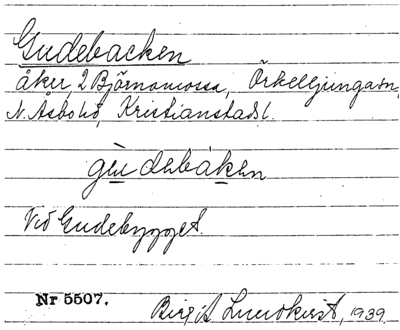 Gudebacken
åker, 2 Björnamossa, Örkelljungasn,
N. Åsbo hd, Kristianstadsl.
gudebaken
Vid Gudebygget.
Nr 5507. Birgit Lundkvist, 1939